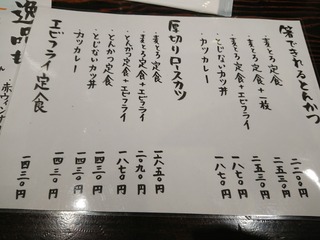 箸できれるとんかつ
・麦とろ定食 二二〇〇円
・麦とろ定食+一枚 二五三〇円
・麦とろ定食+エビフライ 二五三〇円
・とじないカツ丼 一八七〇円
・カツカレー 一八七〇円
厚切りロースカツ
・麦とろ定食 一六五〇円
・麦とろ定食+エビフライ 二〇九〇円
・とんかつ定食+エビフライ 一八七〇円
・とんかつ定食 一四三〇円
・とじないカツ丼 一四三〇円
・カツカレー 一四三〇円
エビフライ定食 一四三〇円
逸品も
・赤ウィンナ